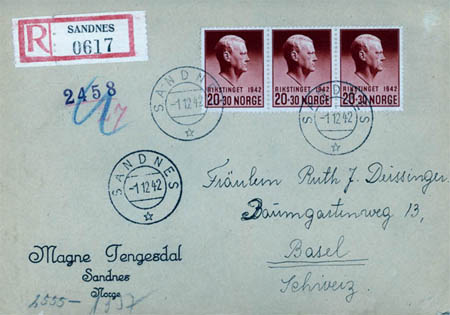 R SANDNES
0617
2458
RIKSTINGET 1942
20+30 NORGE
RIKSTINGET 1942
20+30 NORGE
RIKSTINGET 1942
20+30 NORGE
SANDNES
-1 12 42
SANDNES
-1 12 42
SANDNES
-1 12 42
Fräulein Ruth J. Deissinger
Baumgartenweg 13,
Basel
Schweiz.
Magne Tengesdal
Sandnes
Norge